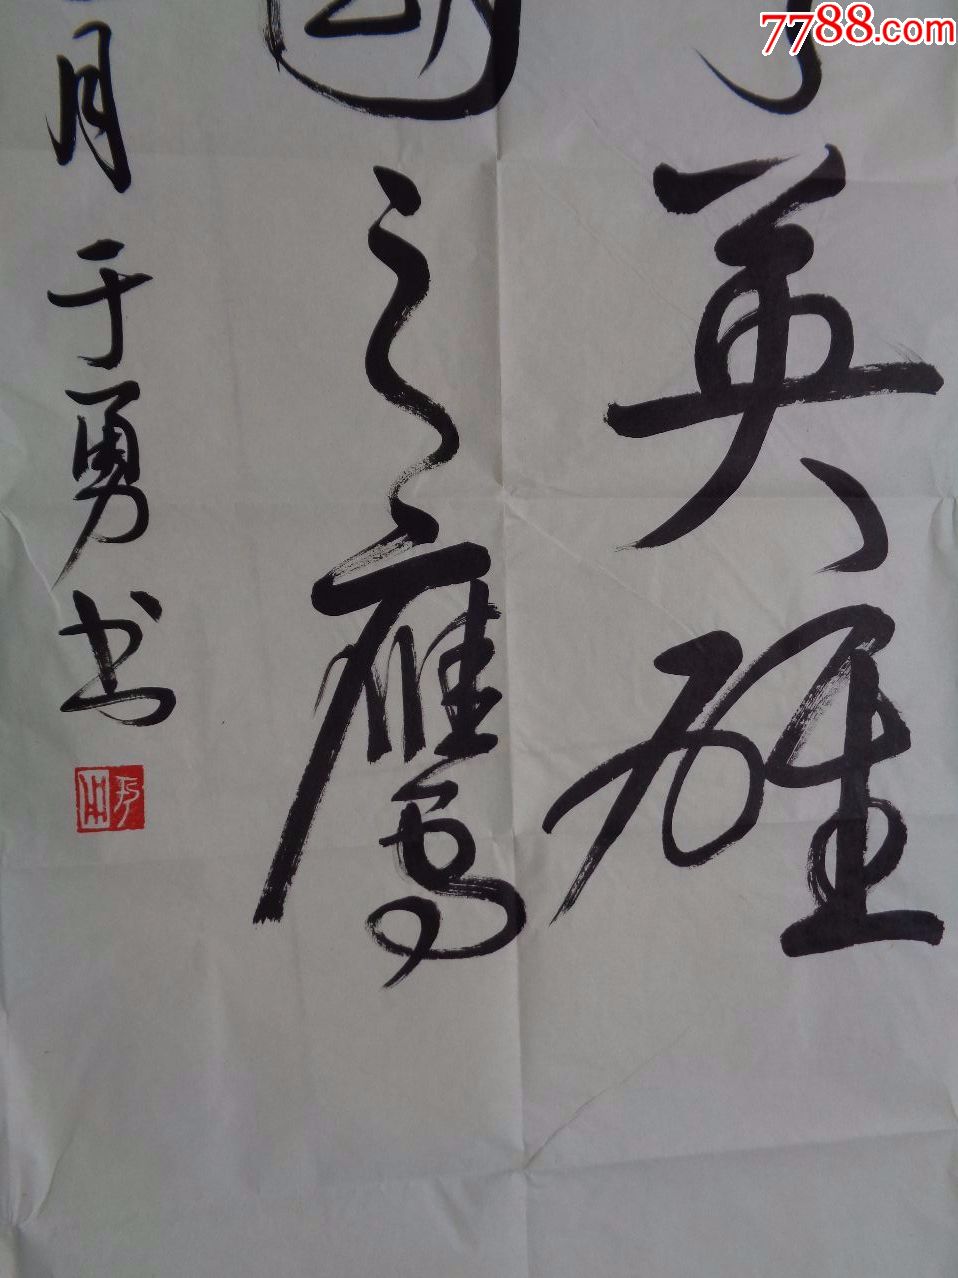 7788.com
英雄
之鹰
月于勇书